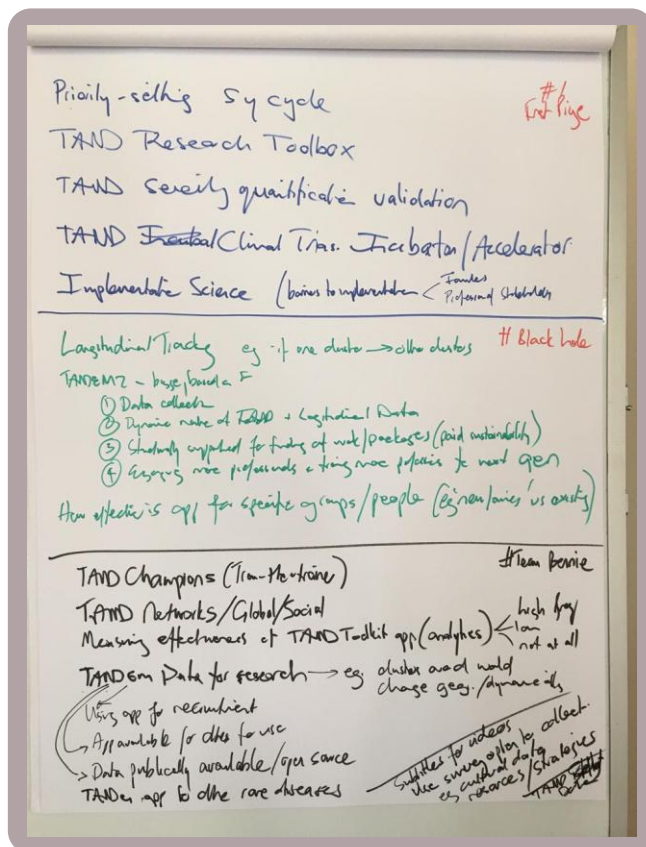 Priority-setting 5y cycle
#1
TAND Research Toolbox
TAND severity quantification validation
TAND Clinical Trials Incubator/Accelerator
Implementation Science (barriers to implementation < Families
Professional Stakeholders
# Black hole
Longitudinal Tracking eg if one cluster → other clusters
TANDEM2 -
① Data collection
② Dynamic nature of TAND + Longitudinal Data
③ Structurally supported for funding of work/packages (paid sustainability)
④ Engaging more professionals + training more to next gen
How effective is app for specific groups/people (eg new vs existing)
#Team Bennie
TAND Champions (Train-the-trainer)
TAND Networks/Global/Social
Measuring effectiveness of TAND Toolkit app (analytics) < high freq
low
not at all
TANDem Data for research → eg clusters around world
change geog./dynamically
Using app for recruitment
→ App available for others to use
→ Data publically available/open source
TANDem app to other rare diseases
Subtitles for videos
Use survey option to collect
eg cultural data
resources/strategies
TAND